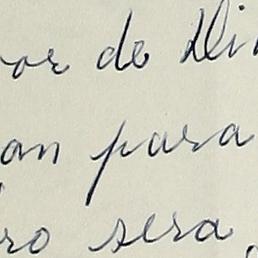 or de Di
an para
ro sera